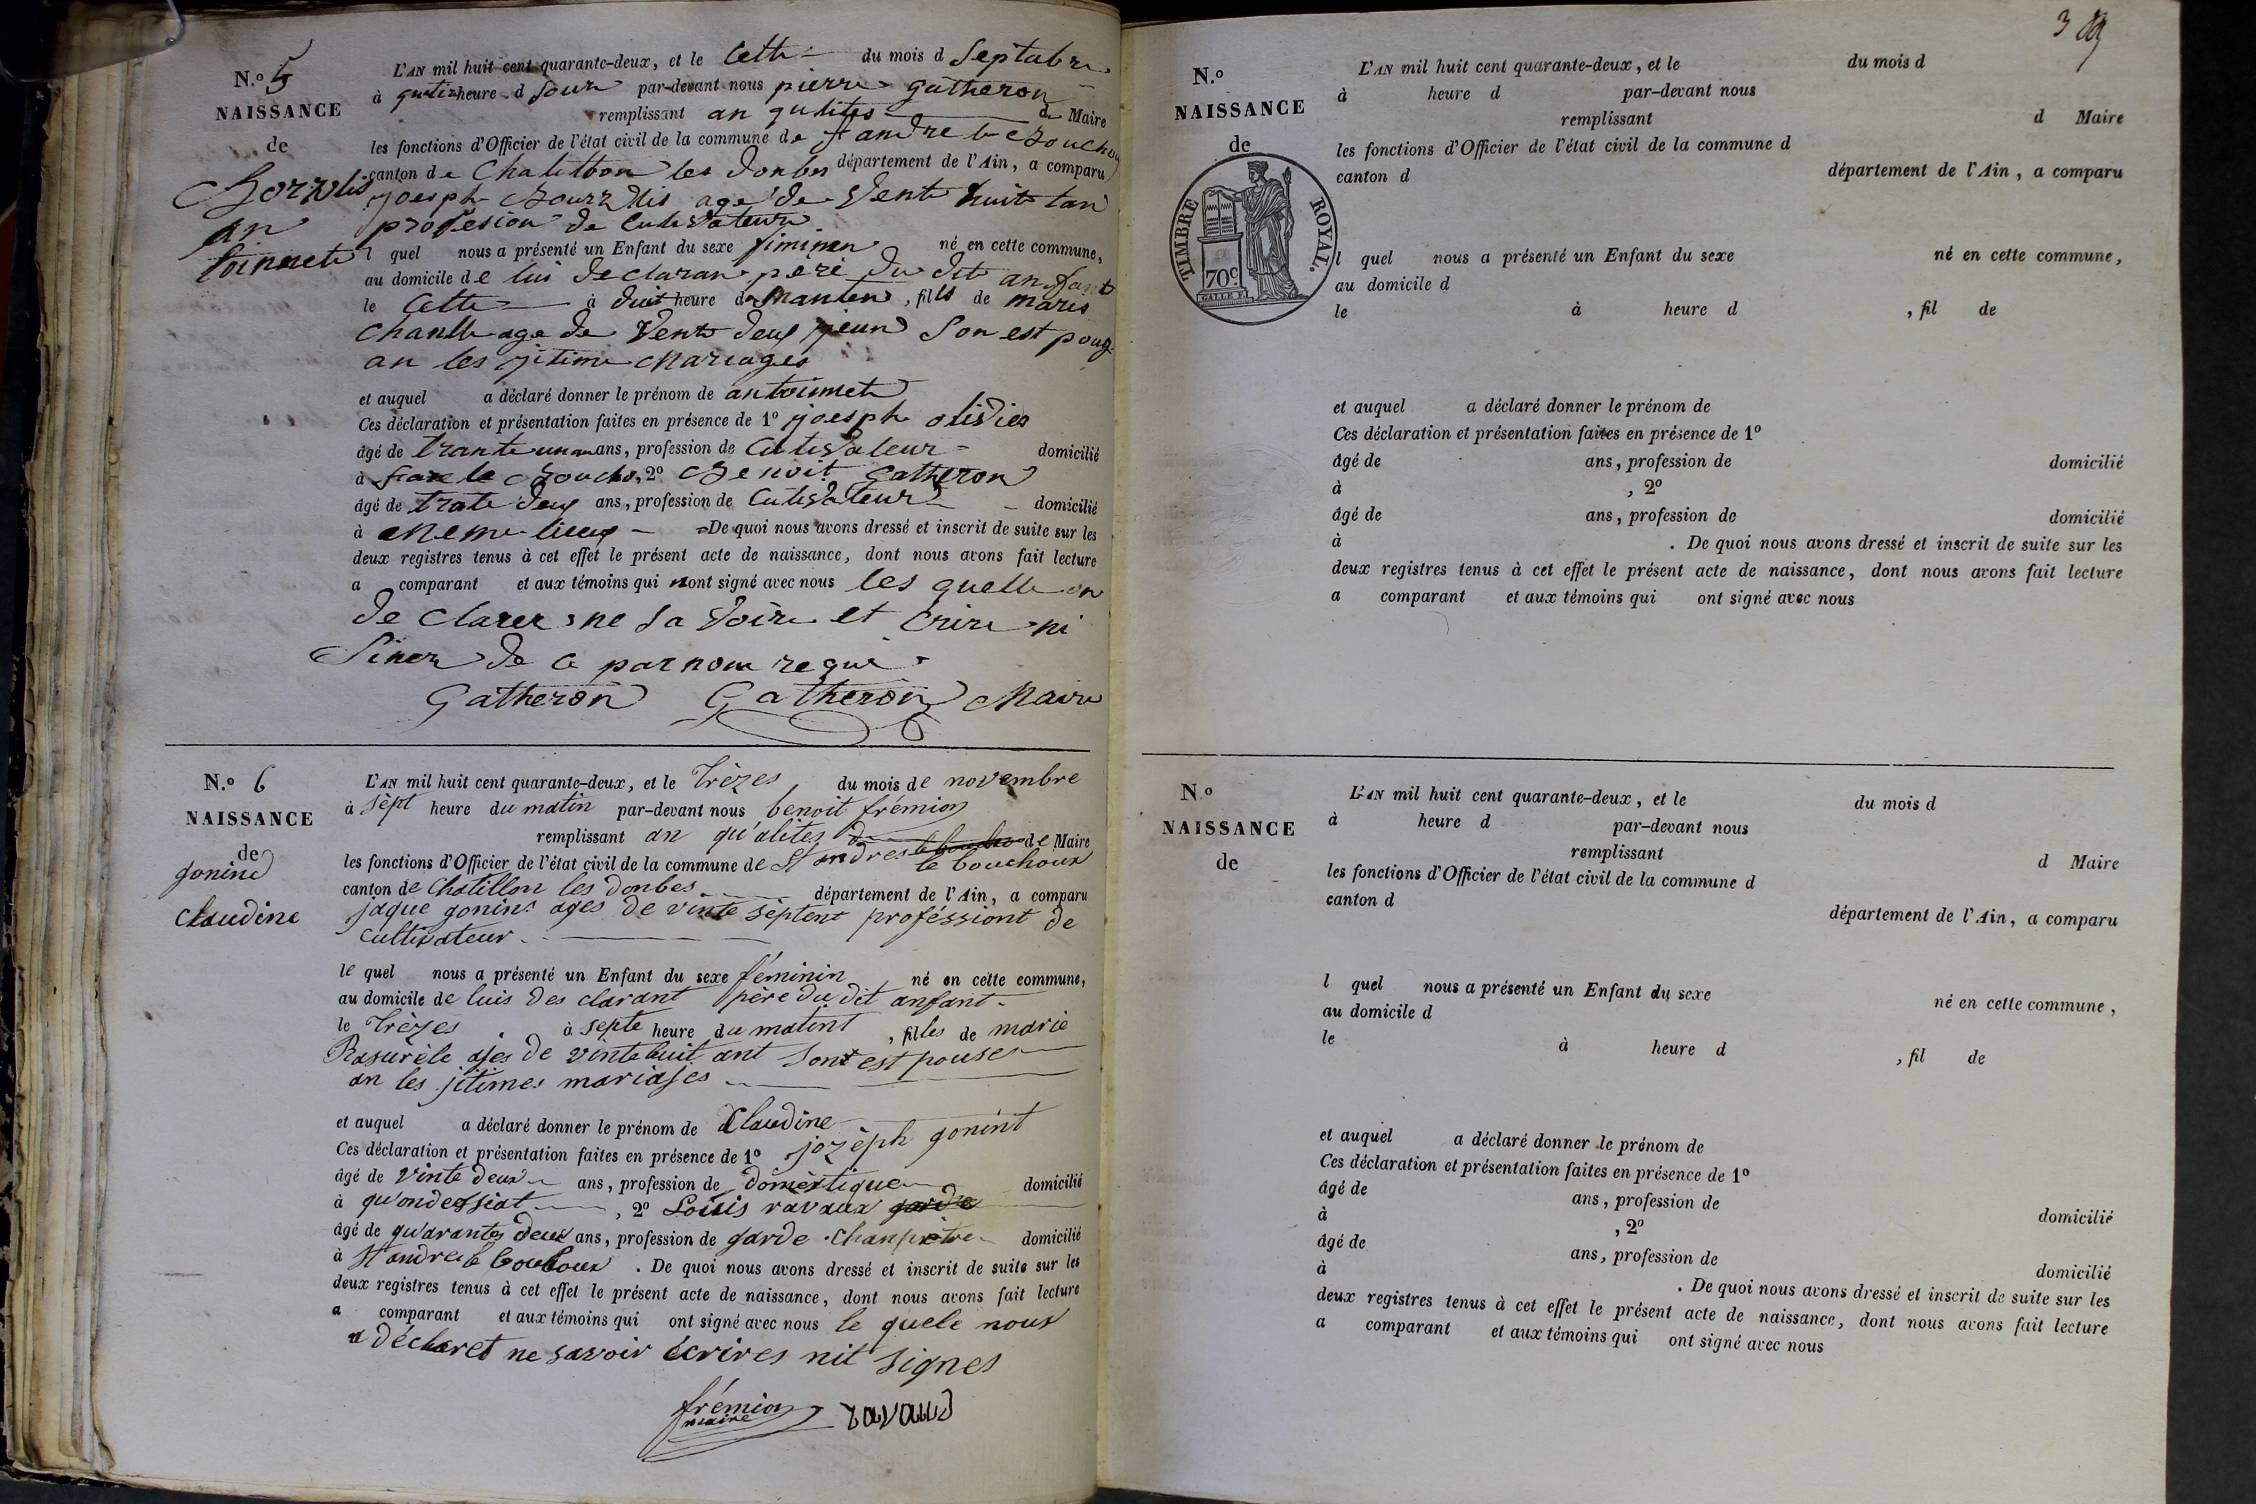 N.o 5
NAISSANCE
de
Borzolis
an
toinnete
L'AN mil huit cent quarante-deux, et le Cette du mois d Septabre
à heure d par-devant nous pierre gatheron
remplissant an qulites de Maire
les fonctions d'Officier de l'état civil de la commune de st andre le Bouchou
canton de Chatillon les donbes département de l'Ain, a comparu
joesph age de vente huite tan
profesion de Culivateur
l quel nous a présenté un Enfant du sexe fiminen né en cette commune,
au domicile de lui declaran pere du dit anfant
le Cette à heure de manten, fills de maris
age de vente deux son est pouz
an les jitime Mariages
et auquel a déclaré donner le prénom de antoinnete
Ces déclaration et présentation faites en présence de 1o joesph olivier
âgé de trante un ans, profession de Cultivateur domicilié
à le Bouchou, 2o Benoit Gatheron
âgé de trate deux ans, profession de Cultivateur domicilié
à Meme lieux De quoi nous avons dressé et inscrit de suite sur les
deux registres tenus à cet effet le présent acte de naissance, dont nous avons fait lecture
a comparant et aux témoins qui nont signé avec nous les quelle on
de clarer ne sa voire et Crire ni
Siner de ce par nou requi
Gatheron Gatheron Maire
N.o 6
NAISSANCE
de
gonind
Claudine
L'AN mil huit cent quarante-deux, et le trèzes du mois de novembre
à sèpt heure du matin par-devant nous benoit frémion
remplissant an qu'alites de Maire
les fonctions d'Officier de l'état civil de la commune de St andres le bouchoux
canton de Chatillon les donbes département de l'Ain, a comparu
jaque gonins ages de vinte sèptent proféssiont de
cultivateur
le quel nous a présenté un Enfant du sexe féminin né en cette commune,
au domicile de luis des clarant père du dit anfant
le trèzes à septe heure du matint, filles de marie
Rasurèle ajes de vinte huit ant sont est pouser
an les jitimes mariajes
et auquel a déclaré donner le prénom de Claudine
Ces déclaration et présentation faites en présence de 1o jozèph gonint
âgé de vinte deux ans, profession de domèstique domicilié
à qu'ondessiat, 2o Louis ravaux garde
âgé de qu'arantes deux ans, profession de garde chanpètre domicilié
à St andre le bouhoux. De quoi nous avons dressé et inscrit de suite sur les
deux registres tenus à cet effet le présent acte de naissance, dont nous avons fait lecture
a comparant et aux témoins qui ont signé avec nous le quele nous
a déclaret ne savoir écrires nit signes
frémion ravaud
maire
3
N.o
NAISSANCE
de
TIMBRE ROYAL.
70c.
L'AN mil huit cent quarante-deux, et le du mois d
à heure d par-devant nous
remplissant d Maire
les fonctions d'Officier de l'état civil de la commune d
canton d département de l'Ain, a comparu
l quel nous a présenté un Enfant du sexe né en cette commune,
au domicile d
le à heure d , fil de
et auquel a déclaré donner le prénom de
Ces déclaration et présentation faites en présence de 1o
âgé de ans, profession de domicilié
à , 2o
âgé de ans, profession de domicilié
à . De quoi nous avons dressé et inscrit de suite sur les
deux registres tenus à cet effet le présent acte de naissance, dont nous avons fait lecture
a comparant et aux témoins qui ont signé avec nous
N.o
NAISSANCE
de
L'AN mil huit cent quarante-deux, et le du mois d
à heure d par-devant nous
remplissant d Maire
les fonctions d'Officier de l'état civil de la commune d
canton d département de l'Ain, a comparu
l quel nous a présenté un Enfant du sexe né en cette commune,
au domicile d
le à heure d , fil de
et auquel a déclaré donner le prénom de
Ces déclaration et présentation faites en présence de 1o
âgé de ans, profession de domicilié
à , 2o
âgé de ans, profession de domicilié
à . De quoi nous avons dressé et inscrit de suite sur les
deux registres tenus à cet effet le présent acte de naissance, dont nous avons fait lecture
a comparant et aux témoins qui ont signé avec nous